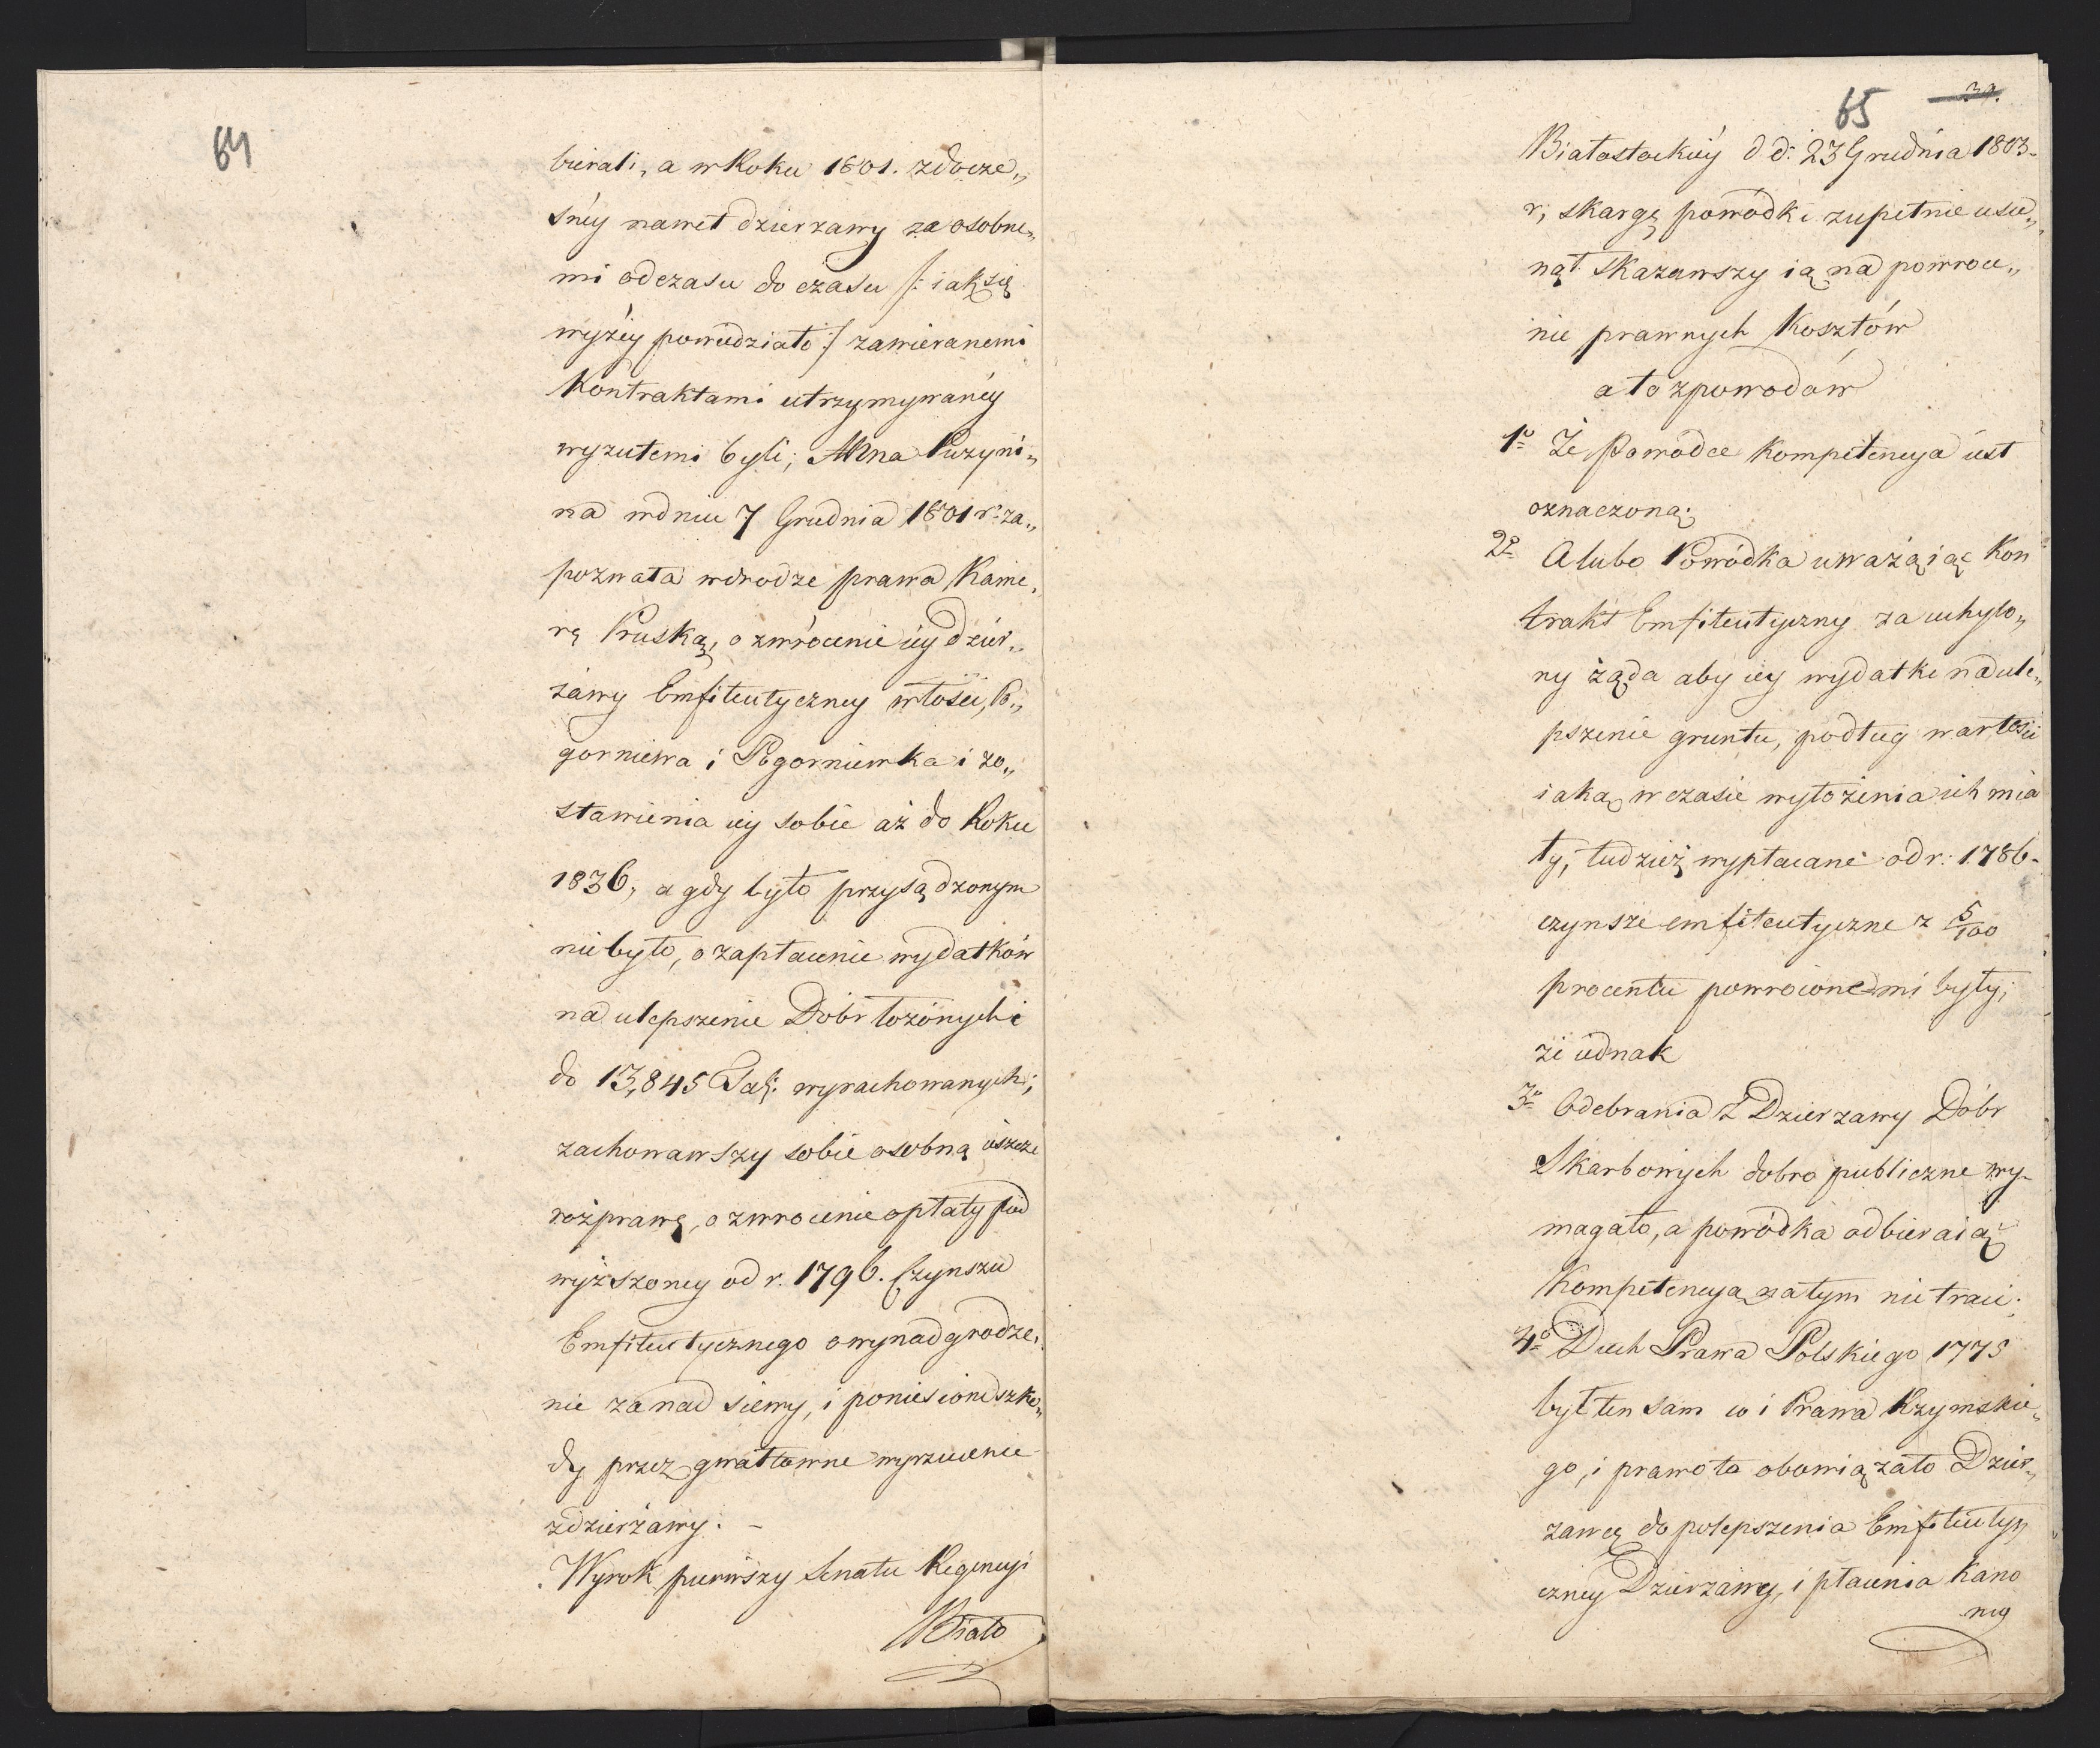 64
bierali, a w Roku 1801. zdocze„
sney nawet dzierzawy za osobne„
mi odczasu do czasu /: iak się
wyżey powiedziało :/ zawieranemi
Kontraktami utrzymywaney
wyzutemi byli; Anna Puzyni„
na wdniu 7 Grudnia 1801 r. za„
pozwała wdrodze prawa Kame„
rę Pruską, o zwrócenie iey dzier„
żawy Emfiteutyczney włości, Po„
gorniewa i Pogorniewka i zo„
stawienia iey sobie aż do Roku
1836, a gdy było przysądzonym
niebyło, o zapłacenie wydatków
na ulepszenie Dóbr łożonych i
do 13,845 Tal: wyrachowanych;
zachowawszy sobie osobną ieszcze
rozprawę, o zwrocenie opłaty pod
wyższoney od r. 1796. Czynszu
Emfiteutycznego o wynadgrodze„
nie za nad siewy, i poniesione szko„
dy przez gwałtowne wyrzucenie
zdzierżawy. –
Wyrok pierwszy Senatu Regencyi
Biało
65
34.
Białostockiey d d: 23 Grudnia 1803.
r; skargę powódki zupełnie usu„
nął skazawszy ią na powroce„
nie prawnych Kosztów
a to zpowodów
1o Że Powodce Kompetencya iest
oznaczona;
2o A lubo Powódka uważaiąc Kon
trakt Emfiteutyczny za uchylo„
ny żąda aby iey wydatki na ule„
pszenie gruntu, podług wartości
iaką w czasie wyłożenia ich mia
ły, tudzież wypłacane od r: 1786.
czynsze emfiteutyczne z 5/100
procentu powroconemi były;
że iednak
3o Odebrania z Dzierzawy Dóbr
Skarbowych dobro publiczne wy„
magało, a powódka odbieraiąc
Kompetencyą natym nie traci;
4o Duch Prawa Polskiego 1775
był ten sam co i Prawa Rzymskie„
go, i prawo to obowiązało Dzier„
zawcę do polepszenia Emfiteuty„
czney Dzierżawy, i płacenia Kano
nu